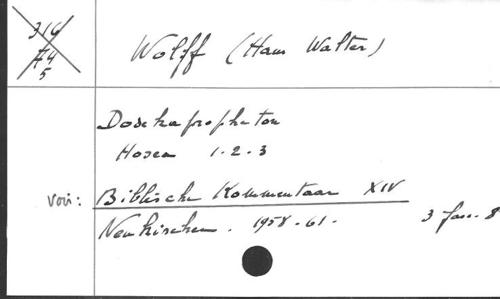 316
A4
5
Wolff (Hans Walter)
Dodekapropheton
Hosea 1-2-3
Voir: Biblische Kommentaar XIV
Neukirchen. 1958-61. 3 fasc. 8